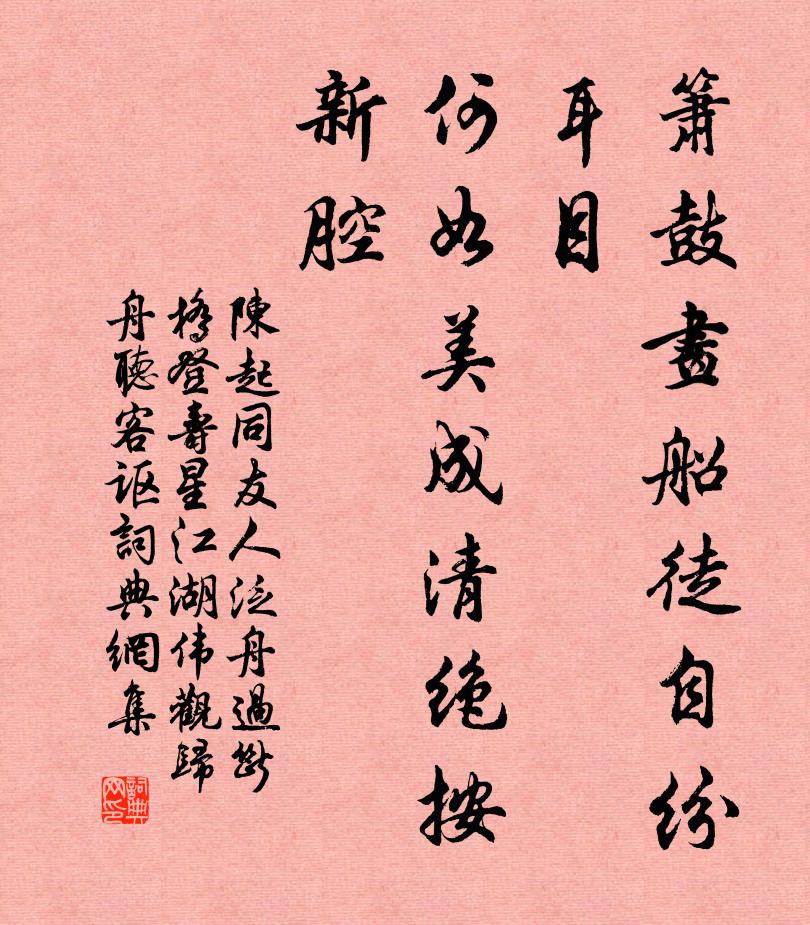 簫鼓畫船徒自紛
耳目
何如美成清絶按
新腔
陳起同友人泛舟過斷
橋登壽星江湖伟觀歸
舟聽客讴詞典網集
詞典
网印